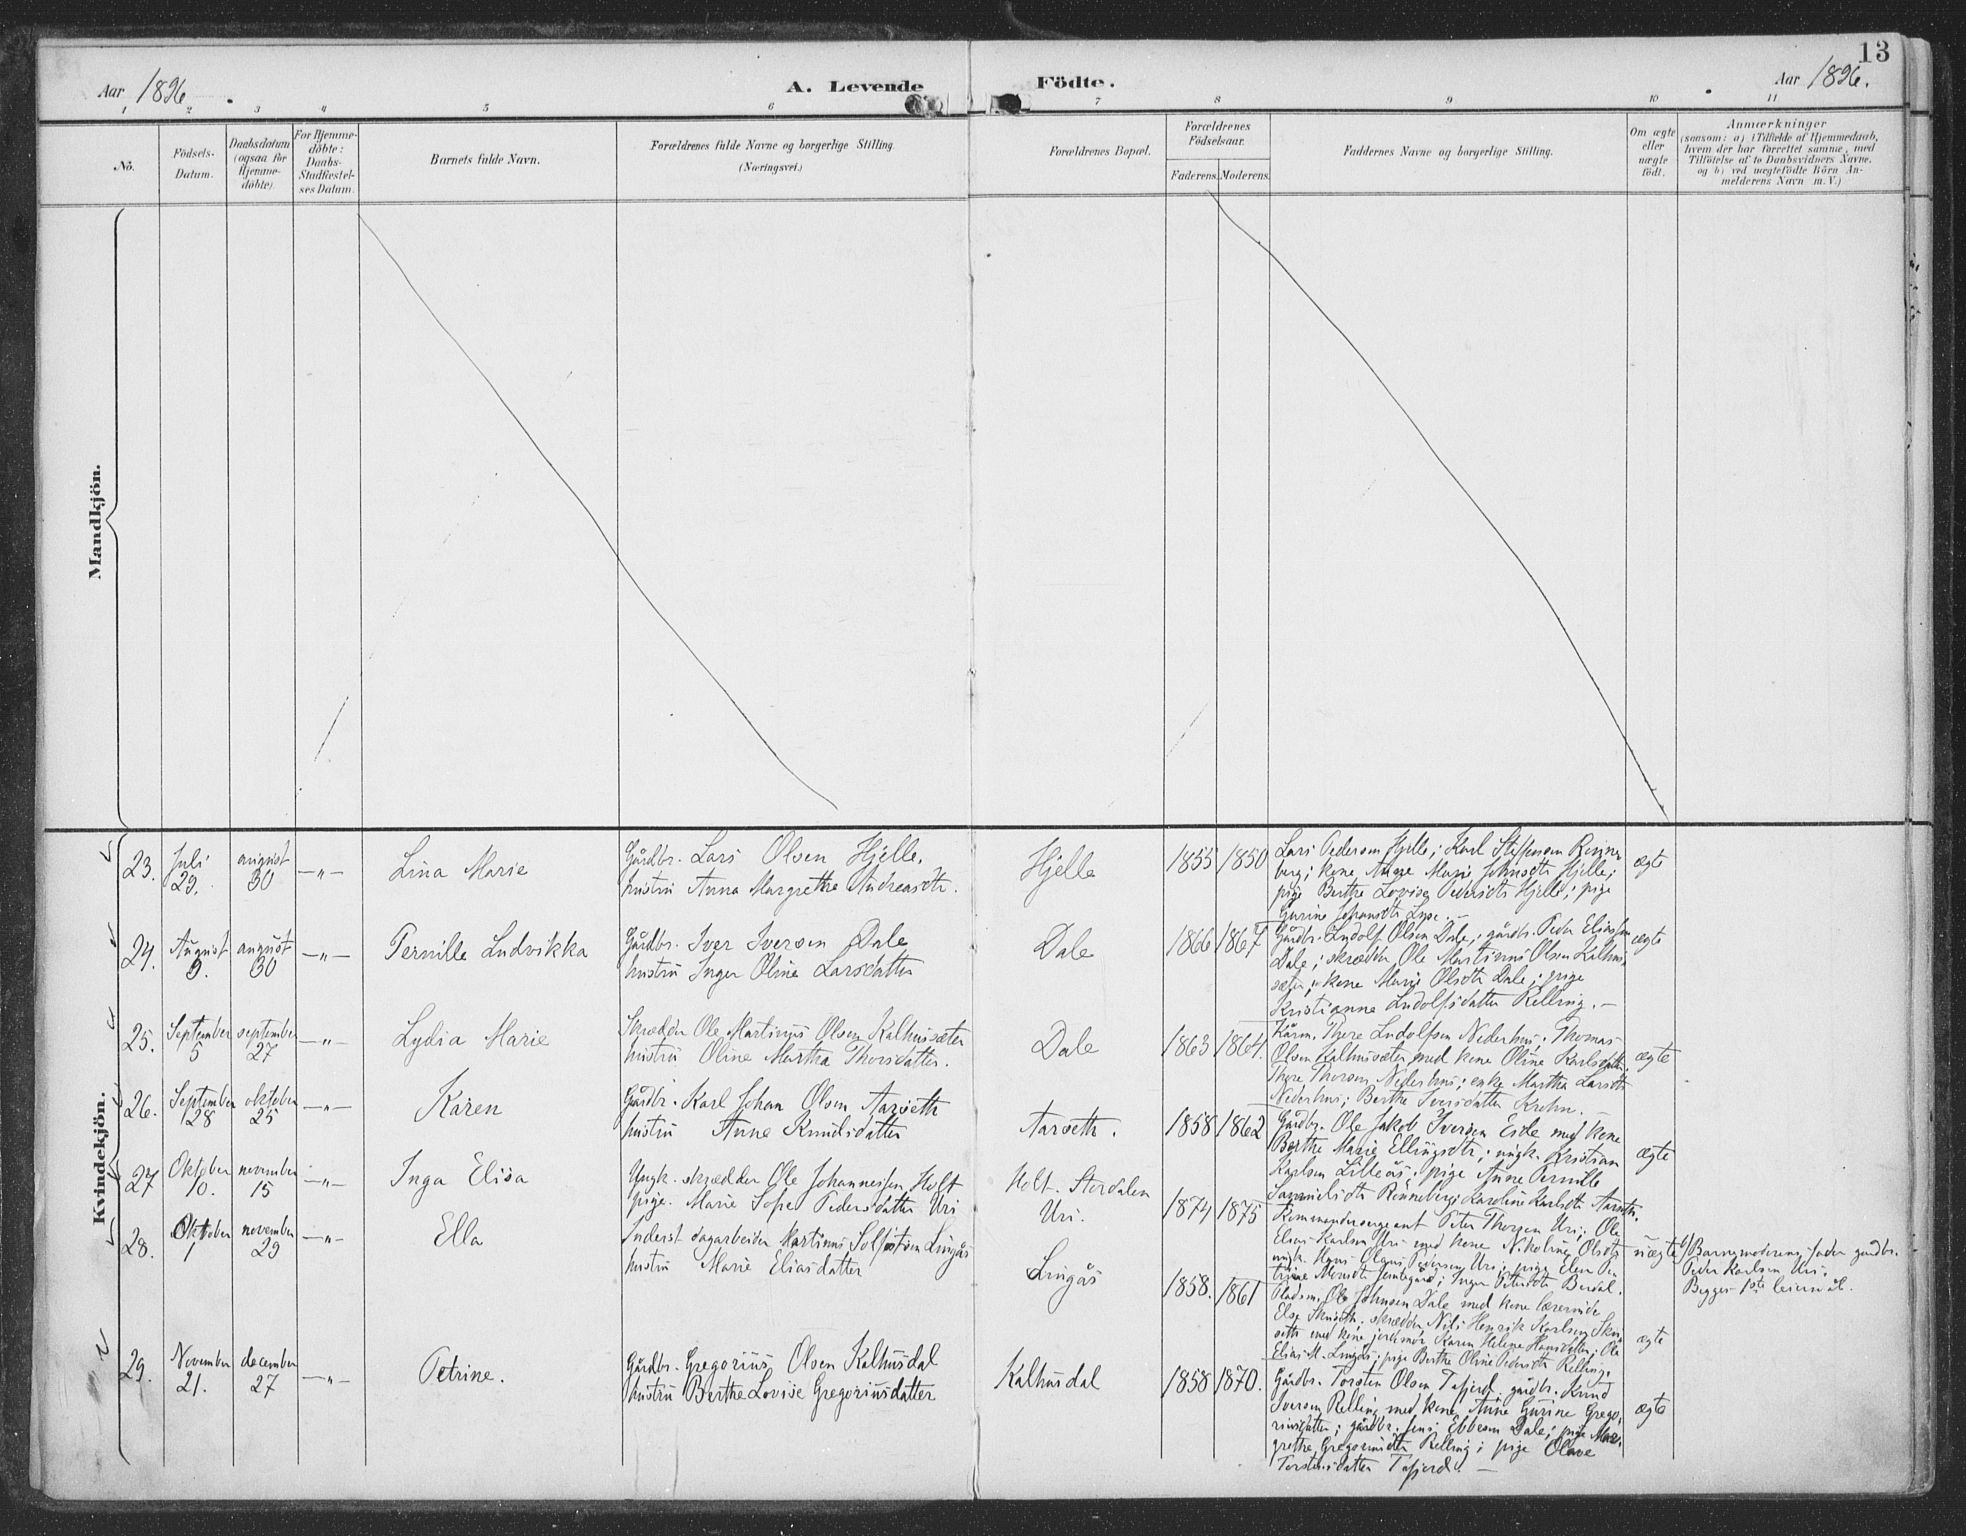 13
Aar 1896. A. Levende Födte. Aar 1896.
1 2 3 4 5 6 7 8 9 10 11
No.
Födsels-Datum.
Daabsdatum (ogsaa for Hjemme-döbte).
For Hjemme-döbte: Daabs-Stadfæstel-ses Datum.
Barnets fulde Navn.
Forældrenes fulde Navne og borgerlige Stilling.
(Næringsvei.)
Forældrenes Bopæl.
Forældrenes Födselsaar.
Faderens. Moderens.
Faddernes Navne og borgerlige Stilling.
Om ægte eller uægte födt.
Anmærkninger
(saasom: a) i Tilfælde af Hjemmedaab,
hvem der har forrettet samme, med
Tilföielse af to Daabsvidners Navne.
og b) ved uægtefödte Börn An-
melderens Navn m. V.)
Mandkjön.
Kvindekjön.
23. Juli 29. august 30 —"— Lina Marie
Gårdbr. Lars Olsen Hjelle,
hustru Anna Margrethe Andreasdtr.
Hjelle 1855 1850
Lars Pedersen Hjelle; Karl Steffensen Rönne
berg; kone Anne Marie Johnsdtr Hjelle;
pige Berthe Lovise Pedersdtr Hjelle; pige
Gurine Johansdtr
ægte
24. August 9. august 30 —"— Pernille Ludvikka
Gårdbr. Iver Iversen Dale
hustru Inger Oline Larsdatter
Dale 1866 1867
Gårdbr. Ludolf Olsen Dale; gårdbr. Peder Eliassen
Dale; skrædder Ole Martinus Olsen Kalhus
sæter; kone Marie Olsdtr Dale; pige
Kristianne Ludolfsdatter Relling. —
ægte
25. September 5 september 27 —"— Lydia Marie
Skrædder Ole Martinus Olsen Kalhussæter
hustru Oline Martha Thorsdatter.
Dale 1863 1864.
Kårm. Thore Ludolfsen Nederhus; Thomas
Olsen Kalhussæter med kone Oline Karlsdatter
Thore Thorsen Nederhus; enke Martha Larsdtr
Nederhus; Berthe Iversdatter Krohn. —
ægte
26. September 28 oktober 25 —"— Karen
Gårdbr. Karl Johan Olsen Aarseth
hustru Anne Knudsdatter
Aarseth. 1858 1862
Gårdbr. Ole Jakob Iversen Eide med kone
Berthe Marie Ellingsdtr; ungk. Kristian
Karlsen Lilleås; pige Anne Pernille
Samuelsdtr Rönneberg; Karoline Karlsdtr Aarseth.
ægte
27 Oktober 10. november 15 —"— Inga Elisa
Ungk. skrædder Ole Johannessen Holt
pige. Marie Sofie Pedersdatter Uri
Holt. Stordalen
Uri. 1874 1875
Kommandersergeant Peter Thorsen Uri; Ole
Elias Karlsen Uri med kone Nikoline Olsdtr
ungk. Hans Olaus Pedersen Uri; pige Elen Pe
trine Monsdtr; Inger Pettersdtr Berdal.
uægte
b) Barnemoderens fader gårdbr.
Peder Karlsen Uri.
Begges 1ste leiermål.
28. Oktober 1 november 29 —"— Ella
Inderst dagarbeider Martinus Lingås
hustru Marie Eliasdatter
Lingås 1858. 1861
Pladsm. Ole Johnsen Dale med kone lærerinde
Else; skrædder Nils Henrik Karlsen
seth med kone jordmor Karen Helene Hansdatter; Ole
Elias M. Lingås; pige Berthe Oline Pedersdtr Relling.
ægte
29. November 21. december 27 —"— Petrine.
Gårdbr. Gregorius Olsen Kalhusdal
hustru Berthe Lovise Gregoriusdatter
Kalhusdal 1858 1870.
Gårdbr. Torsten Olsen Tafjord, gårdbr. Knud
Iversen Relling med kone Anne Gurine Grego-
riusdatter; gårdbr. Jens Ebbesen Dale; pige Mar-
grethe Gregoriusdtr Relling; pige Olave
Torstensdatter Tafjord. —
ægte